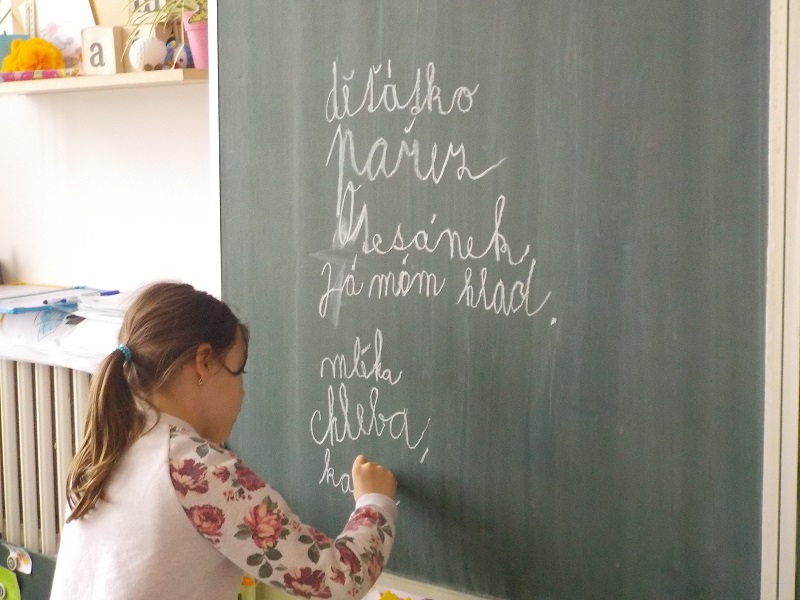 a
děťátko
pařez
Otesánek,
Já mám hlad,
mléka
chleba,
ka